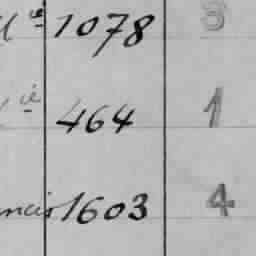 ie 1078 3
ie 464 1
ncis 1603 4